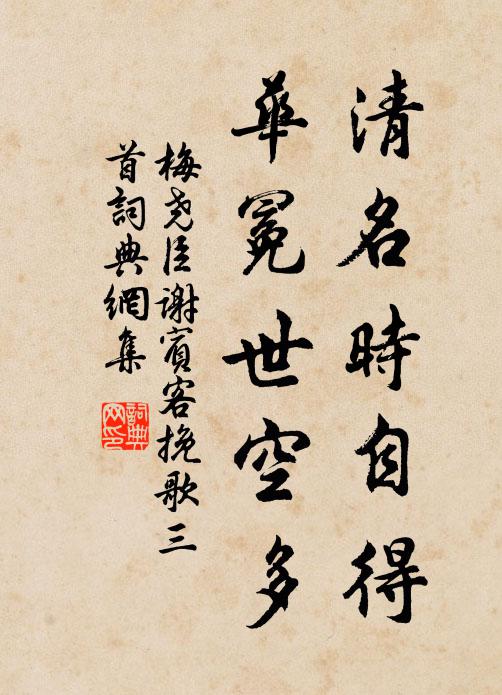 清名時自得
華冕世空多
梅尧臣謝賓客挽歌三
首詞典網集
詞典
网印